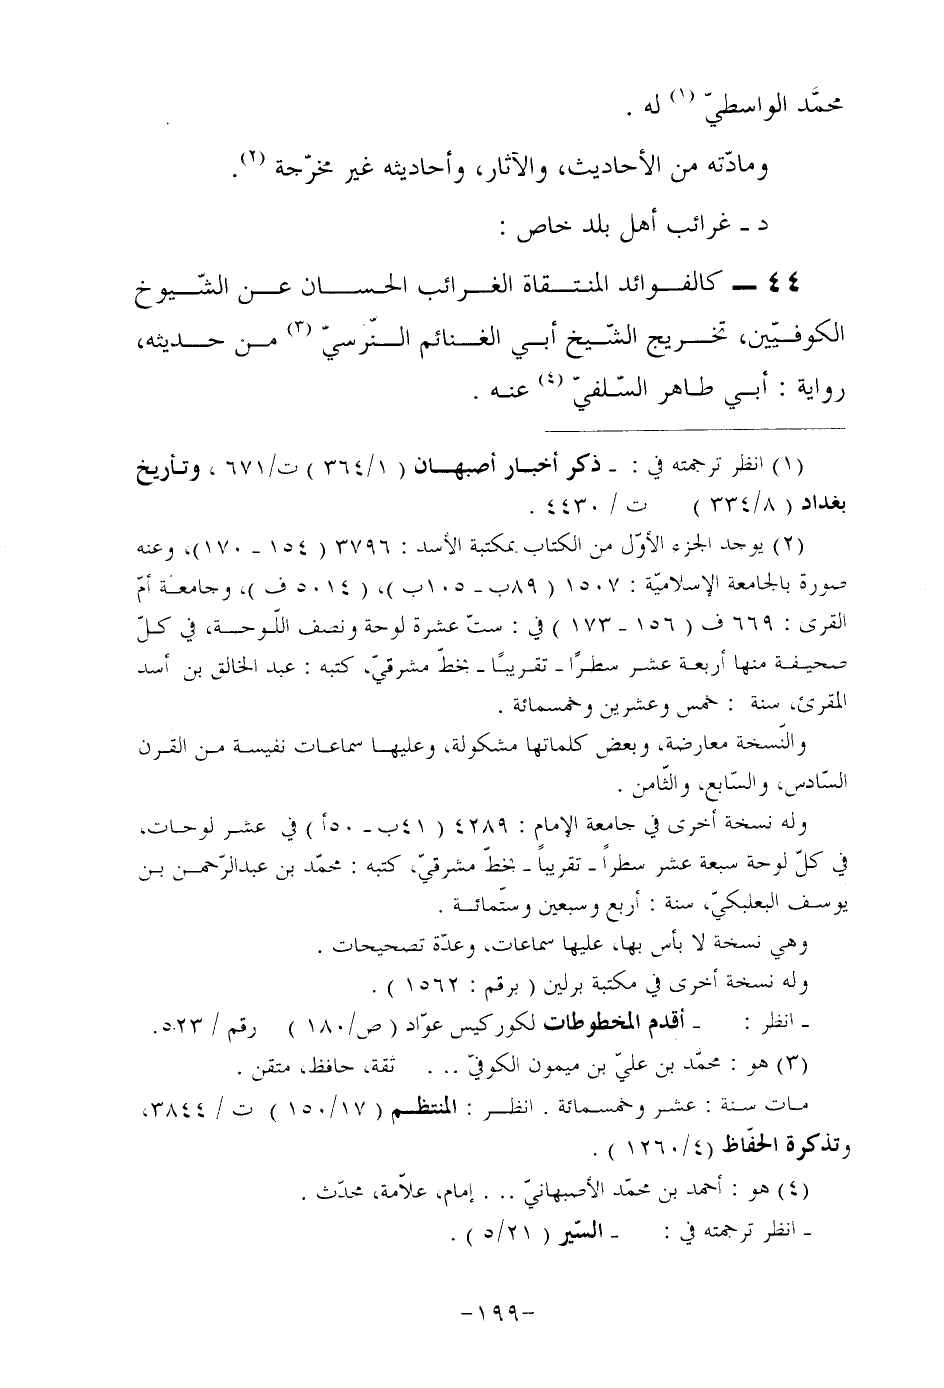 محمَّد الواسطيّ (١) له .
ومادّته من الأحاديث، والآثار، وأحاديثه غير مخرّجة (٢).
د ـ غرائب أهل بلد خاص :
٤٤ ـ كالفوائد المنتقاة الغرائب الحسان عن الشّيوخ
الكوفيّين، تخريج الشّيخ أبي الغنائم النّرسيّ (٣) من حديثه،
رواية : أبي طاهر السّلفيّ (٤) عنه .
(١) انظر ترجمته في : ـ ذكر أخبار أصبهان ( ٣٦٤/١ ) ت/٦٧١ ، وتأريخ
بغداد ( ٣٣٤/٨ ) ت / ٤٤٣٠ .
(٢) يوجد الجزء الأوّل من الكتاب بمكتبة الأسد : ٣٧٩٦ ( ١٥٤ ـ ١٧٠)، وعنه
صورة بالجامعة الإسلاميّة : ١٥٠٧ ( ٨٩ب ـ ١٠٥ب )، ( ٥٠١٤ ف )، وجامعة أمّ
القرى : ٦٦٩ ف ( ١٥٦ ـ ١٧٣ ) في : ستّ عشرة لوحة ونصف اللّوحة، في كلّ
صحيفة منها أربعة عشر سطرًا ـ تقريبًا ـ بخطّ مشرقيّ، كتبه : عبد الخالق بن أسد
المقرئ، سنة : خمس وعشرين وخمسمائة .
والنّسخة معارضة، وبعض كلماتها مشكولة، وعليها سماعات نفيسة من القرن
السّادس، والسّابع، والثّامن .
وله نسخة أخرى في جامعة الإمام : ٤٢٨٩ ( ٤١ب ـ ٥٠أ ) في عشر لوحات،
في كلّ لوحة سبعة عشر سطراً ـ تقريباً ـ بخطّ مشرقيّ، كتبه : محمّد بن عبدالرّحمن بن
يوسف البعلبكيّ، سنة : أربع وسبعين وستّمائة .
وهي نسخة لا بأس بها، عليها سماعات، وعدّة تصحيحات .
وله نسخة أخرى في مكتبة برلين ( برقم : ١٥٦٢ ) .
ـ انظر : ـ أقدم المخطوطات لكوركيس عوّاد ( ص/١٨٠ ) رقم / ٥٢٣.
(٣) هو : محمّد بن عليّ بن ميمون الكوفيّ .. . ثقة، حافظ، متقن .
مات سنة : عشر وخمسمائة . انظر : المنتظم ( ١٥٠/١٧ ) ت / ٣٨٤٤،
وتذكرة الحفّاظ (١٢٦٠/٤ ) .
(٤) هو : أحمد بن محمّد الأصبهانيّ .. . إمام، علاّمة، محدّث .
ـ انظر ترجمته في : ـ السّير ( ٥/٢١ ) .
-١٩٩-